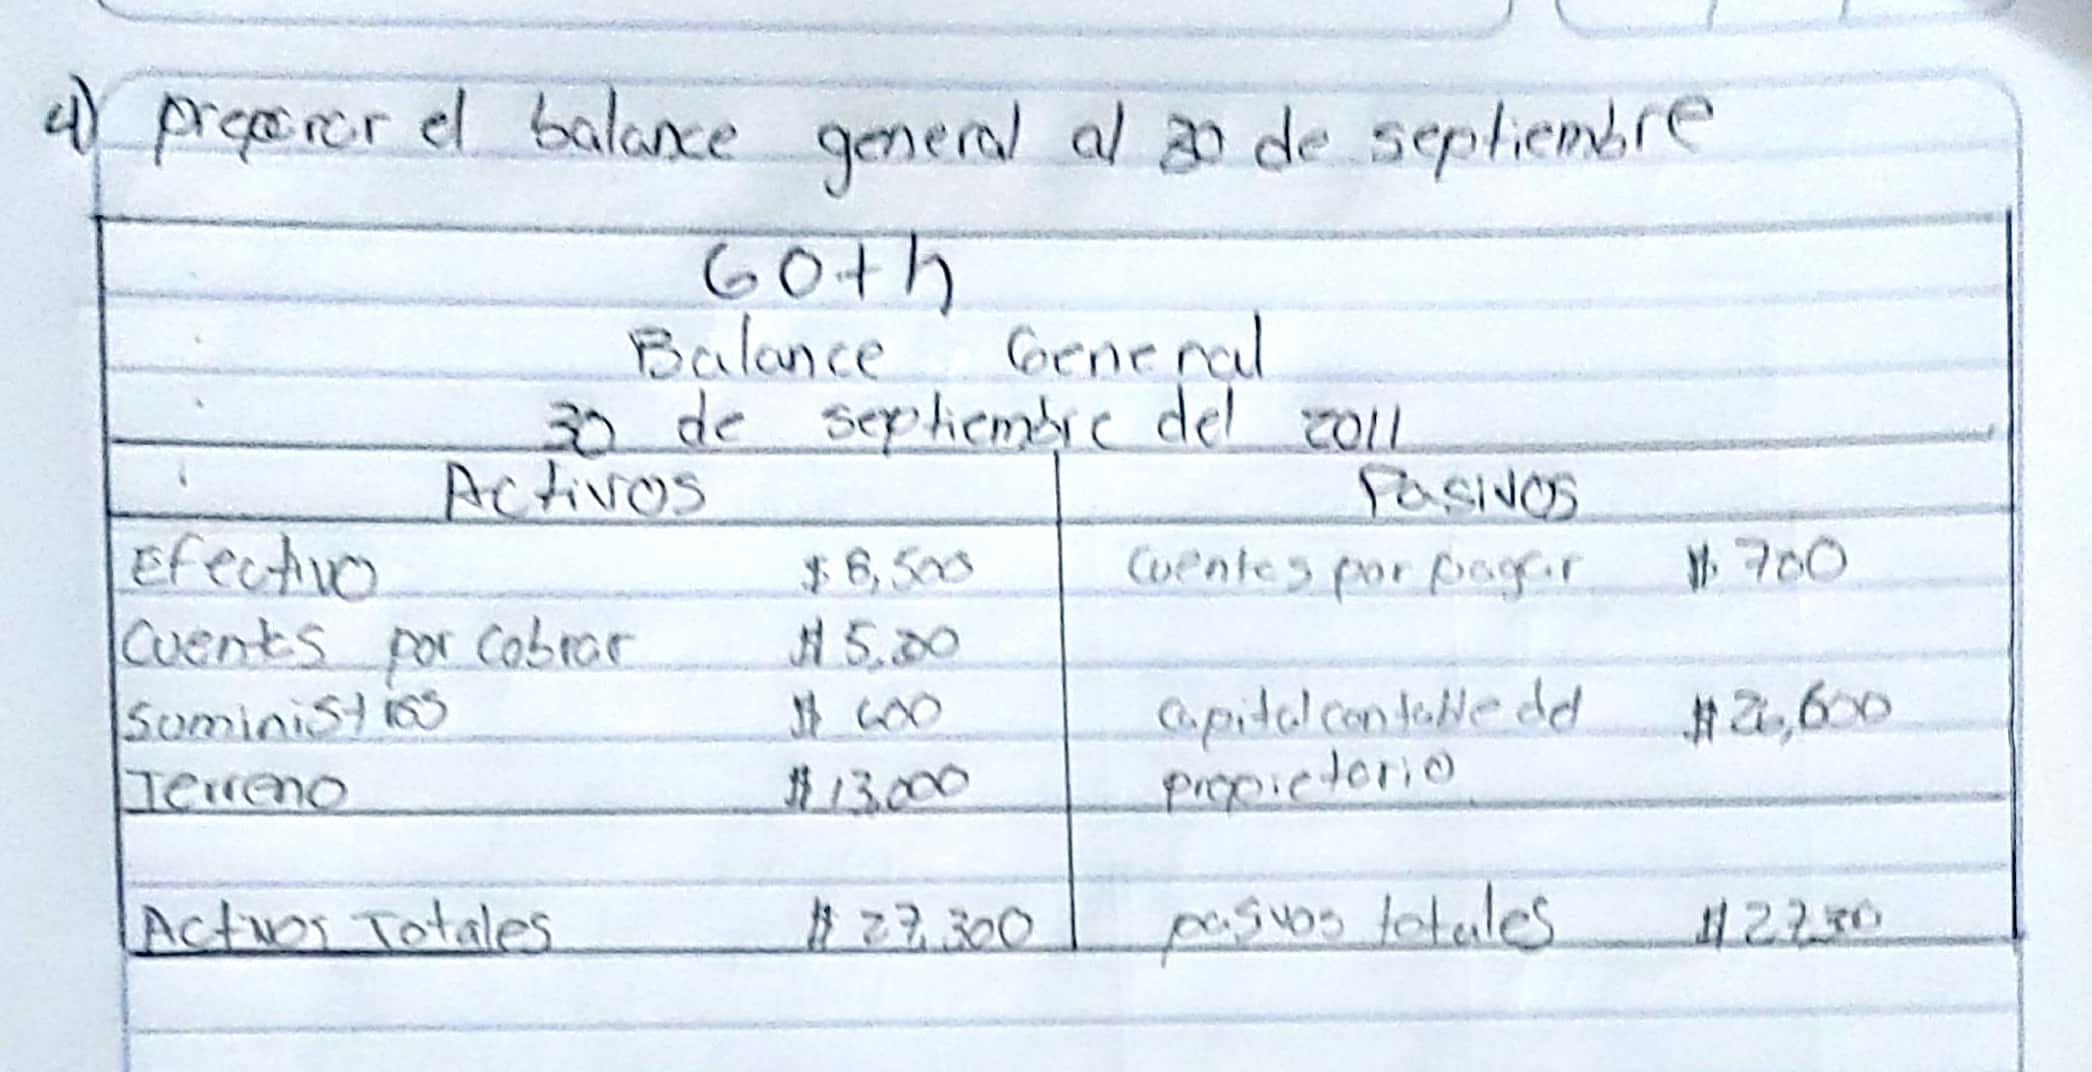 4) preparar el balance general al 30 de septiembre
Goth
Balance General
30 de septiembre del 2011
Activos Pasivos
Efectivo $ 8,500 Cuentas por pagar $ 700
Cuentas por cobrar $
Suministros $ 600 Capital contable del $ 26,600
Terreno $ 13,000 propietario
Activos Totales $ 27,300 pasivos totales $